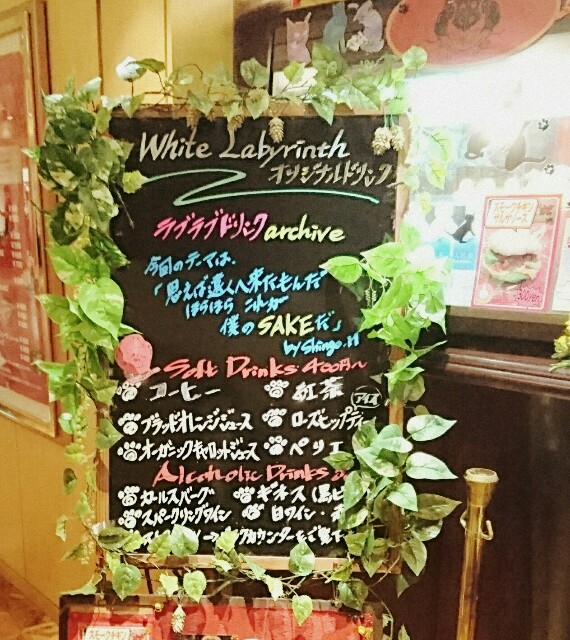 White Labyrinth
オリジナルドリンク
ラブラブドリンク archive
今回のテーマは、
「思えば遠くへ来たもんだ
ほらほら これが
僕のSAKEだ」
by Shingo.H
Soft Drinks 400円〜
コーヒー 紅茶
アイス
ブラッドオレンジジュース ローズヒップティー
オーガニックキャロットジュース ペリエ
Alcoholic Drinks
カールスバーグ ギネス(黒ビ
スパークリングワイン 白ワイン・
カウンターをご覧
スモークチキン
サルサソース
スモークチキン